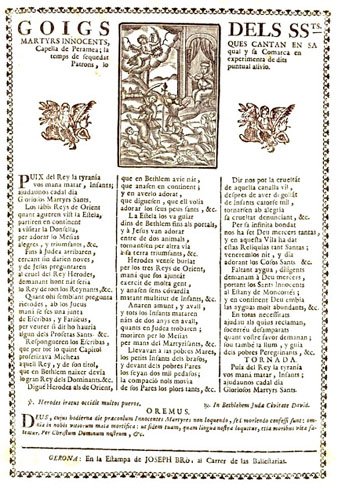 GOIGS DELS SS.TS.
MARTYRS INNOCENTS, QUES CANTAN EN SA
Capella de Peramea; la qual y sa Comarca en
temps de sequedat experimenta de dits
Patrons, lo puntual alivio.
PUIX del Rey la tyrania
vos mana matar, Infants;
ajudaunos cadal dia
Gloriosos Martyrs Sants.
Los sabis Reys de Orient
quant agueren vist la Estela,
partiren en continent
a visitar la Donsella,
per adorar lo Mesias
alegres, y triumfants, &c.
Fins â Judea arribaren,
cercant sin darien noves,
y de Jesus preguntaren
al cruel del Rey Herodes,
demanant hont nat seria
lo Rey de tots los Reynants, &c.
Quant ohi semblant pregunta
Herodes, ab los Jueus
maná se fes una junta
de Escribas, y Fariseus,
per veurer si dit ho havria
algun dels Profetas Sants &c.
Respongueren los Escribas
que per tot lo quint Capitol
profetizava Micheas
aquell Rey, y de son titol,
que en Bethlem naixer devia
lo gran Rey dels Dominants, &c.
Digué Herodes als de Orient,
que en Bethlem aviè nit,
que anasen en continent;
y en averlo adorat,
que diguesen, que ell volia
adorar los seus peus sants, &c.
La Estela los va guiar
dins de Bethlem fins als portals,
y â Jesus van adorar
entre de dos animals,
tornantsen per altra via
â sa terra triumfants, &c.
Herodes venise burlat
per los tres Reys de Orient,
maná que fos ajuntat
exercit de molta gent,
y anasen fens covardia
matant multitut de Infants, &c.
Anaren amunt, y avall,
y tots los Infants mataren
náts de dos anys en avall,
quants en Judea trobaren;
moriren per lo Mesias
per mans del Martyrisants, &c.
Llevavan â las pobres Mares,
los petits Infants dels brasos,
y devant dels pobres Pares
los feyan dos mil pedasos;
la compaciò nols movia
de sos Pares los plors tants, &c.
Dir nos pot la crueltât
de aquella canalla vil,
despues de aver degollât
de Infants catorse mil,
tornarsen ab alegria
sa crueltat denunciant, &c.
Per sa infinita bondat
nos ha fet Deu mercer tantas,
y en aquesta Vila ha dat
estas Reliquias tant Santas;
veneremlos nit, y dia
adorant los Cosos Sants &c.
Faltant aygua, diligents
demanam â Deu mercers,
portant los Sants Innocents
al Estany de Moncortès;
y en continent Deu embia
las ayguas molt abundants, &c.
En totas necessitats
ajudau als quius reclaman,
socorreu desamparats
quant vostre favor demanan;
sou també la llum, y guia
dels pobres Peregrinants, &c.
TORNADA.
Puix del Rey la tyrania
vos mana matar, Infants;
ajudaunos cadal dia
Gloriosos Martyrs Sants.
℣. Herodes iratus occidit multos pueros. ℟. In Bethlehem Juda Civitate David.
OREMUS.
DEUS, cujus hodierna die præconium Innocentes Martyres non loquendo, sed moriendo confessi sunt: omnia in nobis vitiorum mala mortifica; ut fidem tuam, quam lingua nostra loquitur, etia moribus vita fateatur. Per Christum Dominum nostrum, &c.
GERONA: En la Estampa de JOSEPH BRÒ, al Carrer de las Ballestarias.